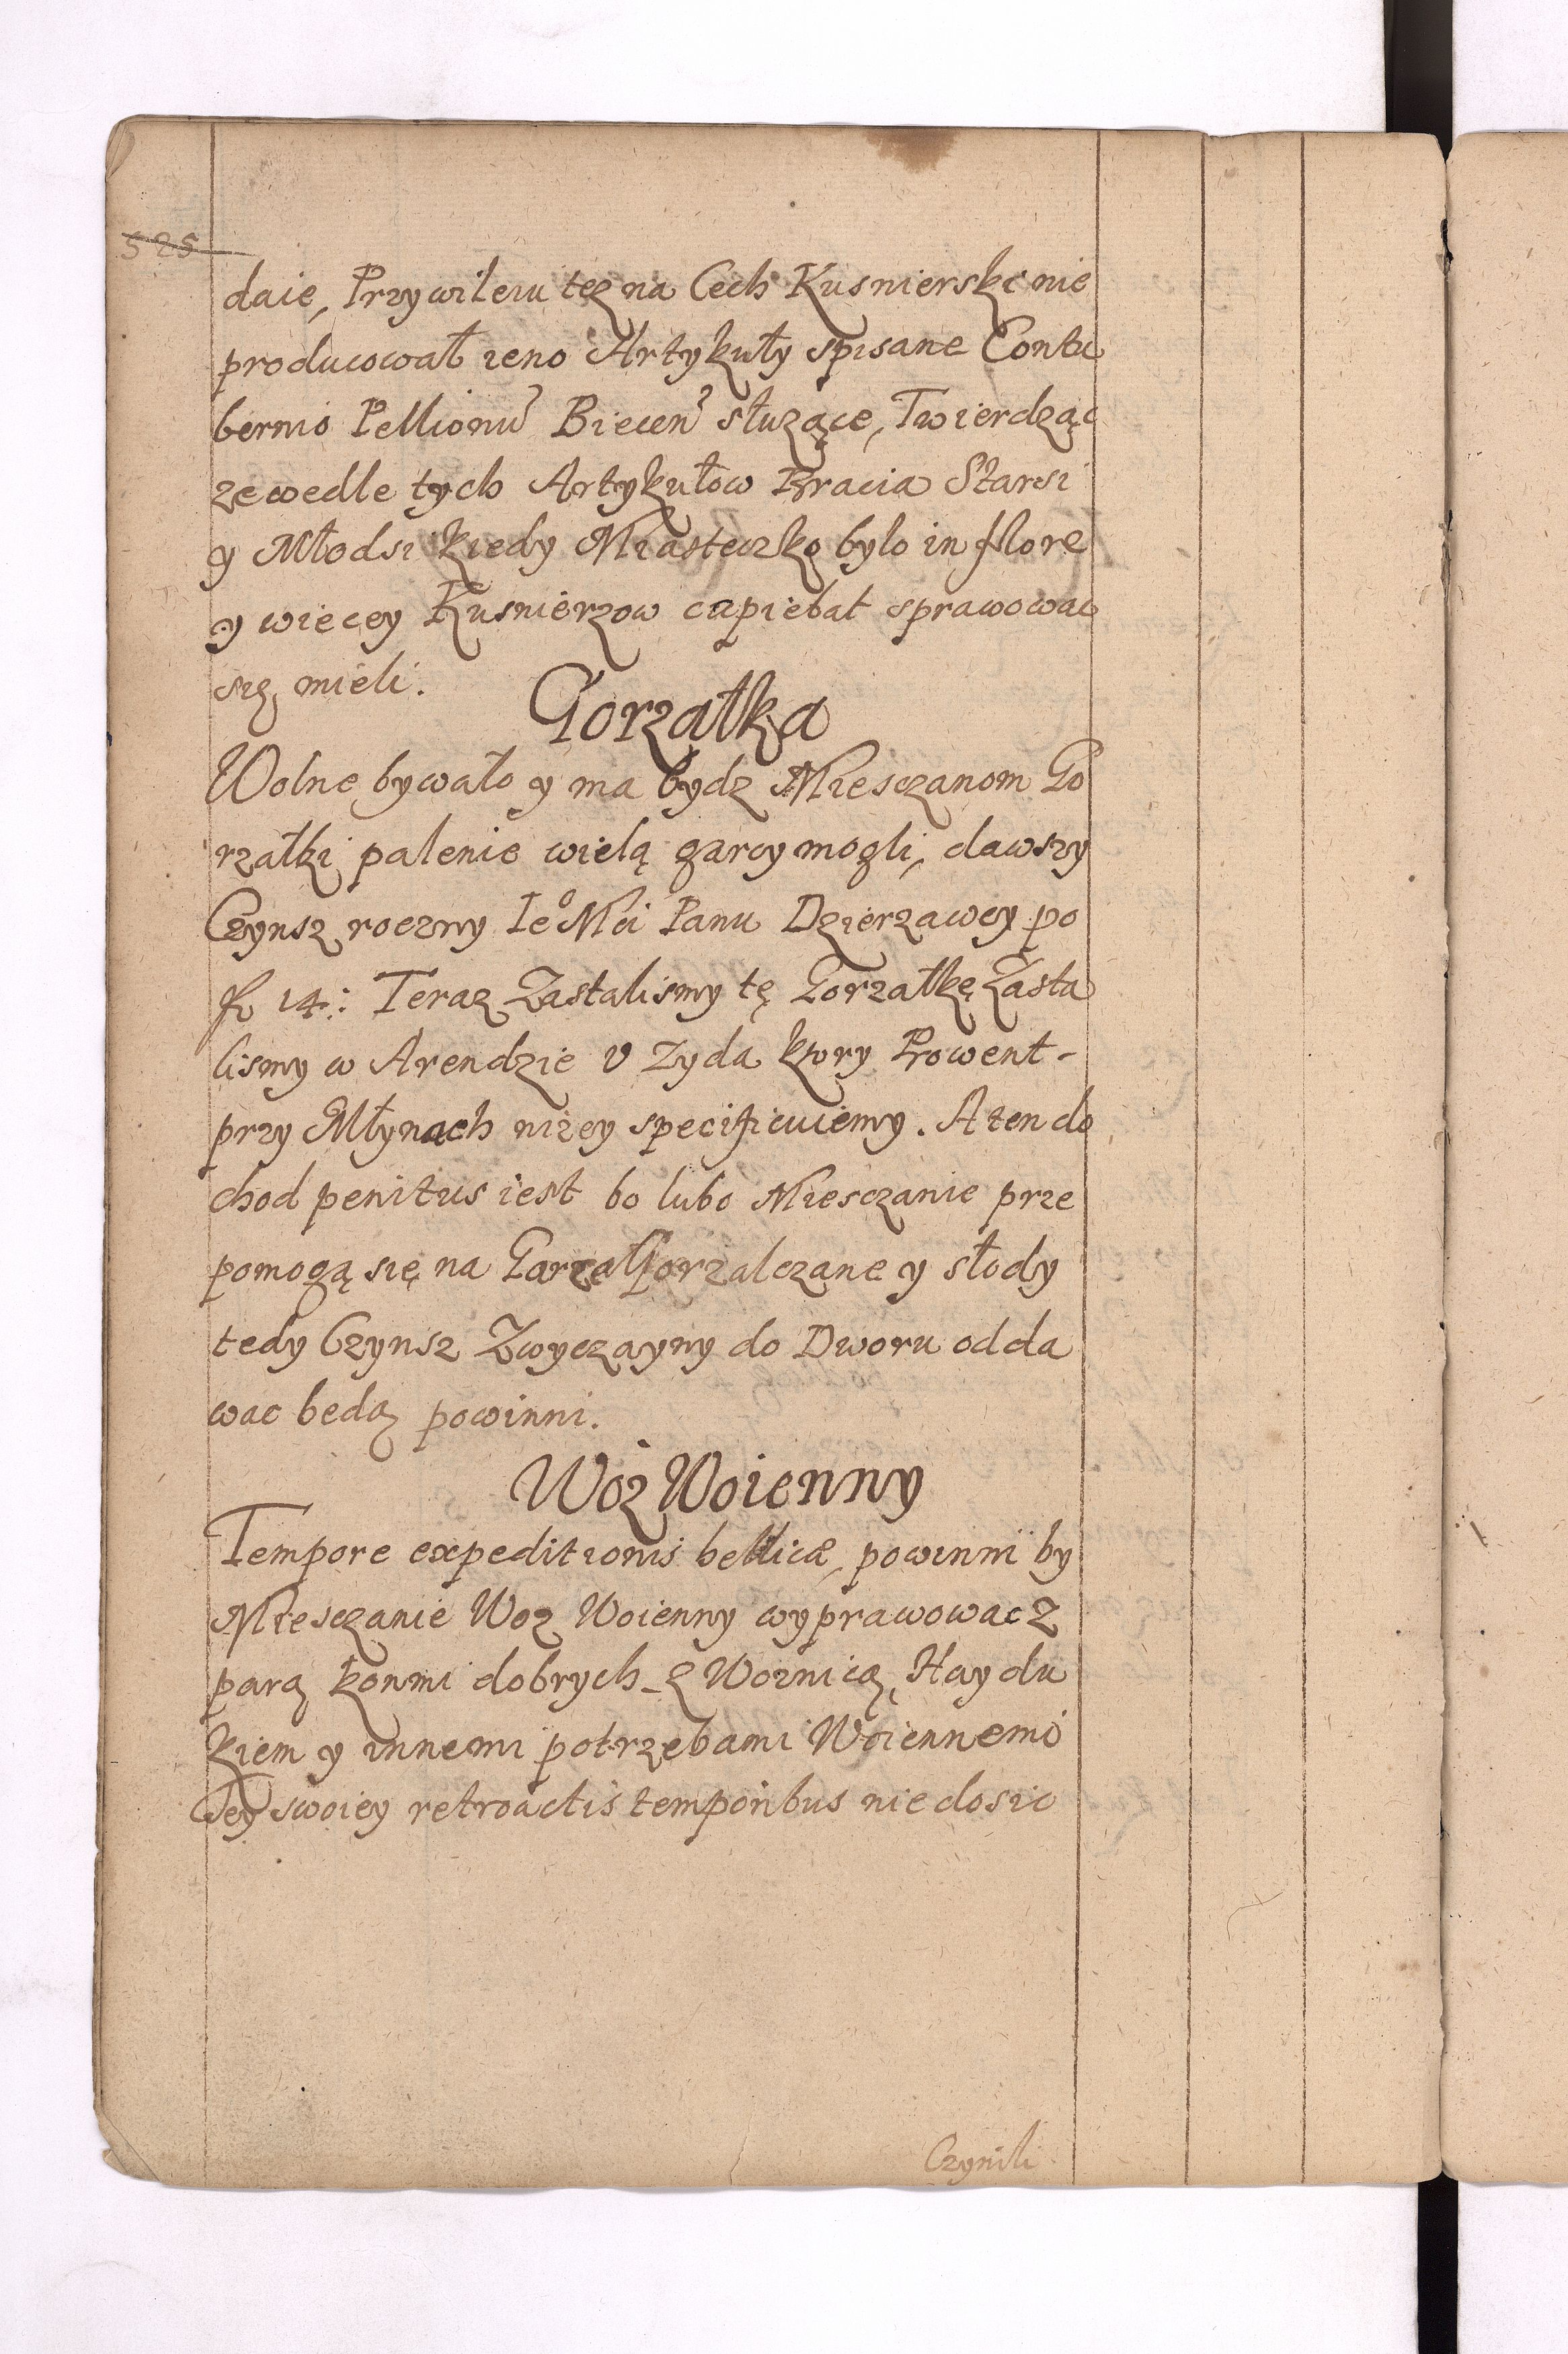 525
daie, Przywileiu tez na Cech Kusnierski nie
producował ieno Artykuły spisane Contu
bernio Pellionũ Biecen̉ słuzące, Twierdząc
ze wedle tych Artykułow Bracia Starsi
y Młodsi kiedy Miasteczko bylo in flore
y wiecey Kusnierzow capiebat sprawowac
się mieli.
Gorzałka
Wolne bywało y ma bydz Miesczanom Go
rzałki palenie wielą garcy mogli, dawszy
Czynsz roczny Ieº Mci Panu Dzierzawcy po
fl 14: Teraz Zastalismy tę Gorzałkę Zasta
lismy w Arendzie v Zyda ktory Prowent-
przy Młynach nizey specificuiemy. A ten do
chod penitus iest bo lubo Miesczanie prze
pomogą się na Garzał Gorzalczane y słody
tedy Czynsz Zwyczayny do Dworu odda
wac bedą powinni.
Woz Woienny
Tempore expeditionis bellicæ, powinni by
Miesczanie Woz Woienny wyprawowac Z
parą konmi dobrych_z Woznicą, Haydu
kiem y innemi potrzebami Woiennemi
Tey swoiey retroactis temporibus nie dosic
Czynili